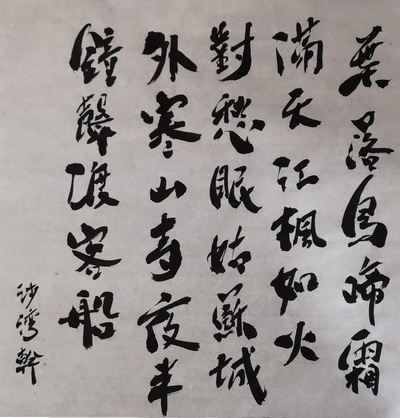 葉落烏啼霜
滿天江楓如火
對愁眠姑蘇城
外寒山寺夜半
鐘聲渡客船